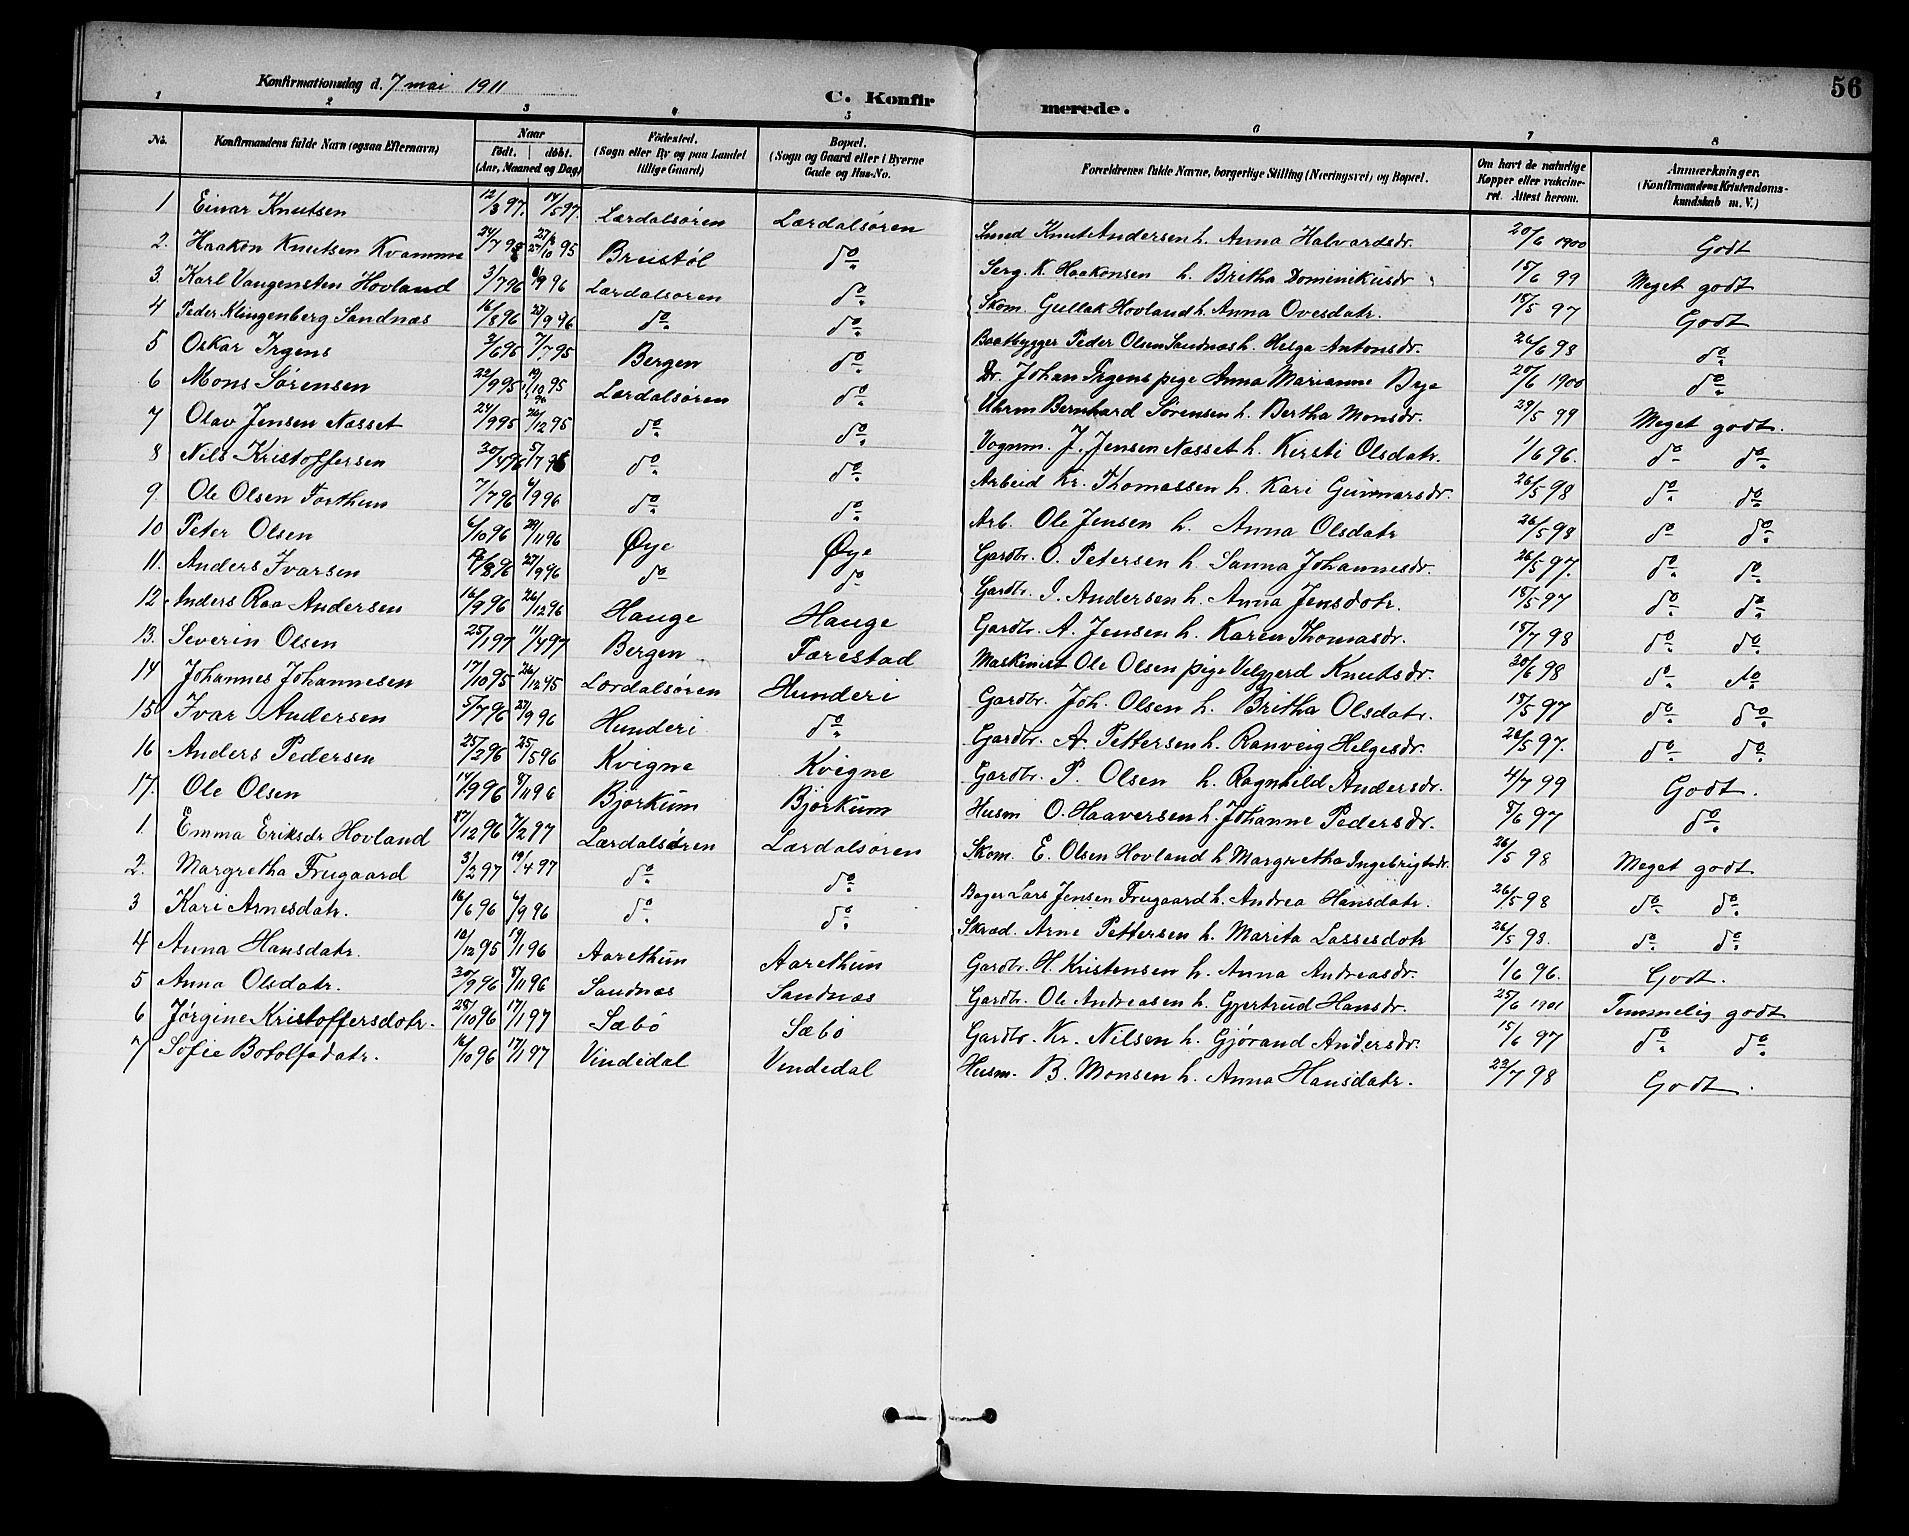 56
Konfirmationsdag d. 7 mai 1911
C. Konfirmerede.
1 2 3 4 5 6 7 8
No. | Konfirmandens fulde Navn (ogsaa Efternavn) | Naar födt. | döbt. (Aar, Maaned og Dag) | Födested. (Sogn eller By og paa Landet tillige Gaard) | Bopæl. (Sogn og Gaard eller i Byerne Gade og Hus-No. | Forældrenes fulde Navne, borgerlige Stilling (Næringsvei) og Bopæl. | Om havt de naturlige Kopper eller vakcineret. Attest herom. | Anmærkninger. (Konfirmandens Kristendomskundskab m. V.)
1 Einar Knutsen 12/3 97. 14/5 97. Lærdalsøren Lærdalsøren Smed Knut Andersen h. Anna Halvardsdr. 20/6 1900 Godt
2. Haakon Knutsen Kvamme 24/7 95 27/10 95 Breistöl do Serg. K. Haakonsen h. Britha Dominikusdr. 15/6 99 Meget godt
3. Karl Vangensten Hovland 3/7 96 6/9 96 Lærdalsøren do Skom. Gullak Hovland h. Anna Ovesdatr. 18/5 97 Godt
4 Peder Klingenberg Sandnæs 16/8 96 27/9 96 do do Baatbygger Peder Olsen Sandnæs h. Helga Antonsdr. 26/6 98 do
5 Oskar Irgens 2/6 95 7/7 95 Bergen do Dr. Johan Irgens pige Anna Marianne Bye 20/6 1900 do
6 Mons Sørensen 22/9 95 19/10 95 Lærdalsören do Uhrm Bernhard Sörensen h. Bertha Monsdr. 29/5 99 Meget godt.
7 Olav Jensen Næsset 24/9 95 26/12 95 do do Vognm. J. Jensen Næsset h. Kirsti Olsdatr. 1/6 96. do do
8 Nils Kristoffersen 30/4 96 5/7 96 do do Arbeid Kr. Thomassen h. Kari Gunnarsdr. 26/5 98 do do
9. Ole Olsen Forthun 7/7 96 6/9 96 do do Arb. Ole Jensen h. Anna Olsdatr 26/5 98 do do
10 Peter Olsen 6/10 96 29/11 96 Øye Øye Gardbr. O. Petersen h. Sanna Johannesdr. 26/5 97. do do
11. Anders Ivarsen 19/8 96 27/9 96 do do Gardbr. I. Andersen h. Anna Jensdatr. 18/5 97 do do
12 Anders Raa Andersen 16/9 96 26/12 96 Hauge Hauge Gardbr. A. Jensen h. Karen Thomasdr. 15/7 98 do do
13. Severin Olsen 25/1 97 11/4 97 Bergen Færestad Maskinist Ole Olsen pige Velgjerd Knutsdr. 20/6 98 do do
14 Johannes Johannesen 17/10 95 26/12 95 Lærdalsøren Hunderi Gardbr. Joh. Olsen h. Britha Olsdatr. 18/5 97 do do
15 Ivar Andersen 5/7 96 27/9 96 Hunderi do Gardbr. A. Pettersen h. Ranveig Helgesdr. 26/5 97. do do
16 Anders Pedersen 25/2 96 25/5 96 Kvigne Kvigne Gardbr. P. Olsen h. Ragnhild Andersdr. 4/7 99 Godt.
17. Ole Olsen 14/9 96 8/11 96 Björkum Björkum Husm O. Haaversen h. Johanne Pedersdr. 8/6 97 do
1. Emma Eriksdr Hovland 27/12 96 7/2 97 Lærdalsören Lærdalsøren Skom. E. Olsen Hovland h Margretha Ingebrigtsdr. 26/5 98 Meget godt
2. Margretha Frugaard 3/2 97 19/4 97 do do Bager Lars Jensen Frugaard h. Andrea Hansdatr. 26/5 98 do do
3 Kari Arnesdatr. 16/6 96 6/9 96 do do Skræd. Arne Pettersen h. Marita Lassesdatr 26/5 98. do do
4 Anna Hansdatr. 10/12 95 19/1 96 Aarethun Aarethun Gardbr. H. Kristensen h. Anna Andreasdr. 1/6 96. Godt.
5 Anna Olsdatr. 20/9 96 8/11 96 Sandnæs Sandnæs Gardbr. Ole Andreasen h. Gjertrud Hansdr. 25/6 1901 Temmelig godt
6 Jørgine Kristoffersdotr. 28/10 96 17/1 97 Sæbö Sæbö Gardbr. Kr. Nilsen h. Gjørand Andersdr. 15/6 97 do do
7 Sofie Botolfsdatr. 16/10 96 17/1 97 Vindedal Vindedal Husm. B. Monsen h. Anna Hansdatr. 22/7 98 Godt.